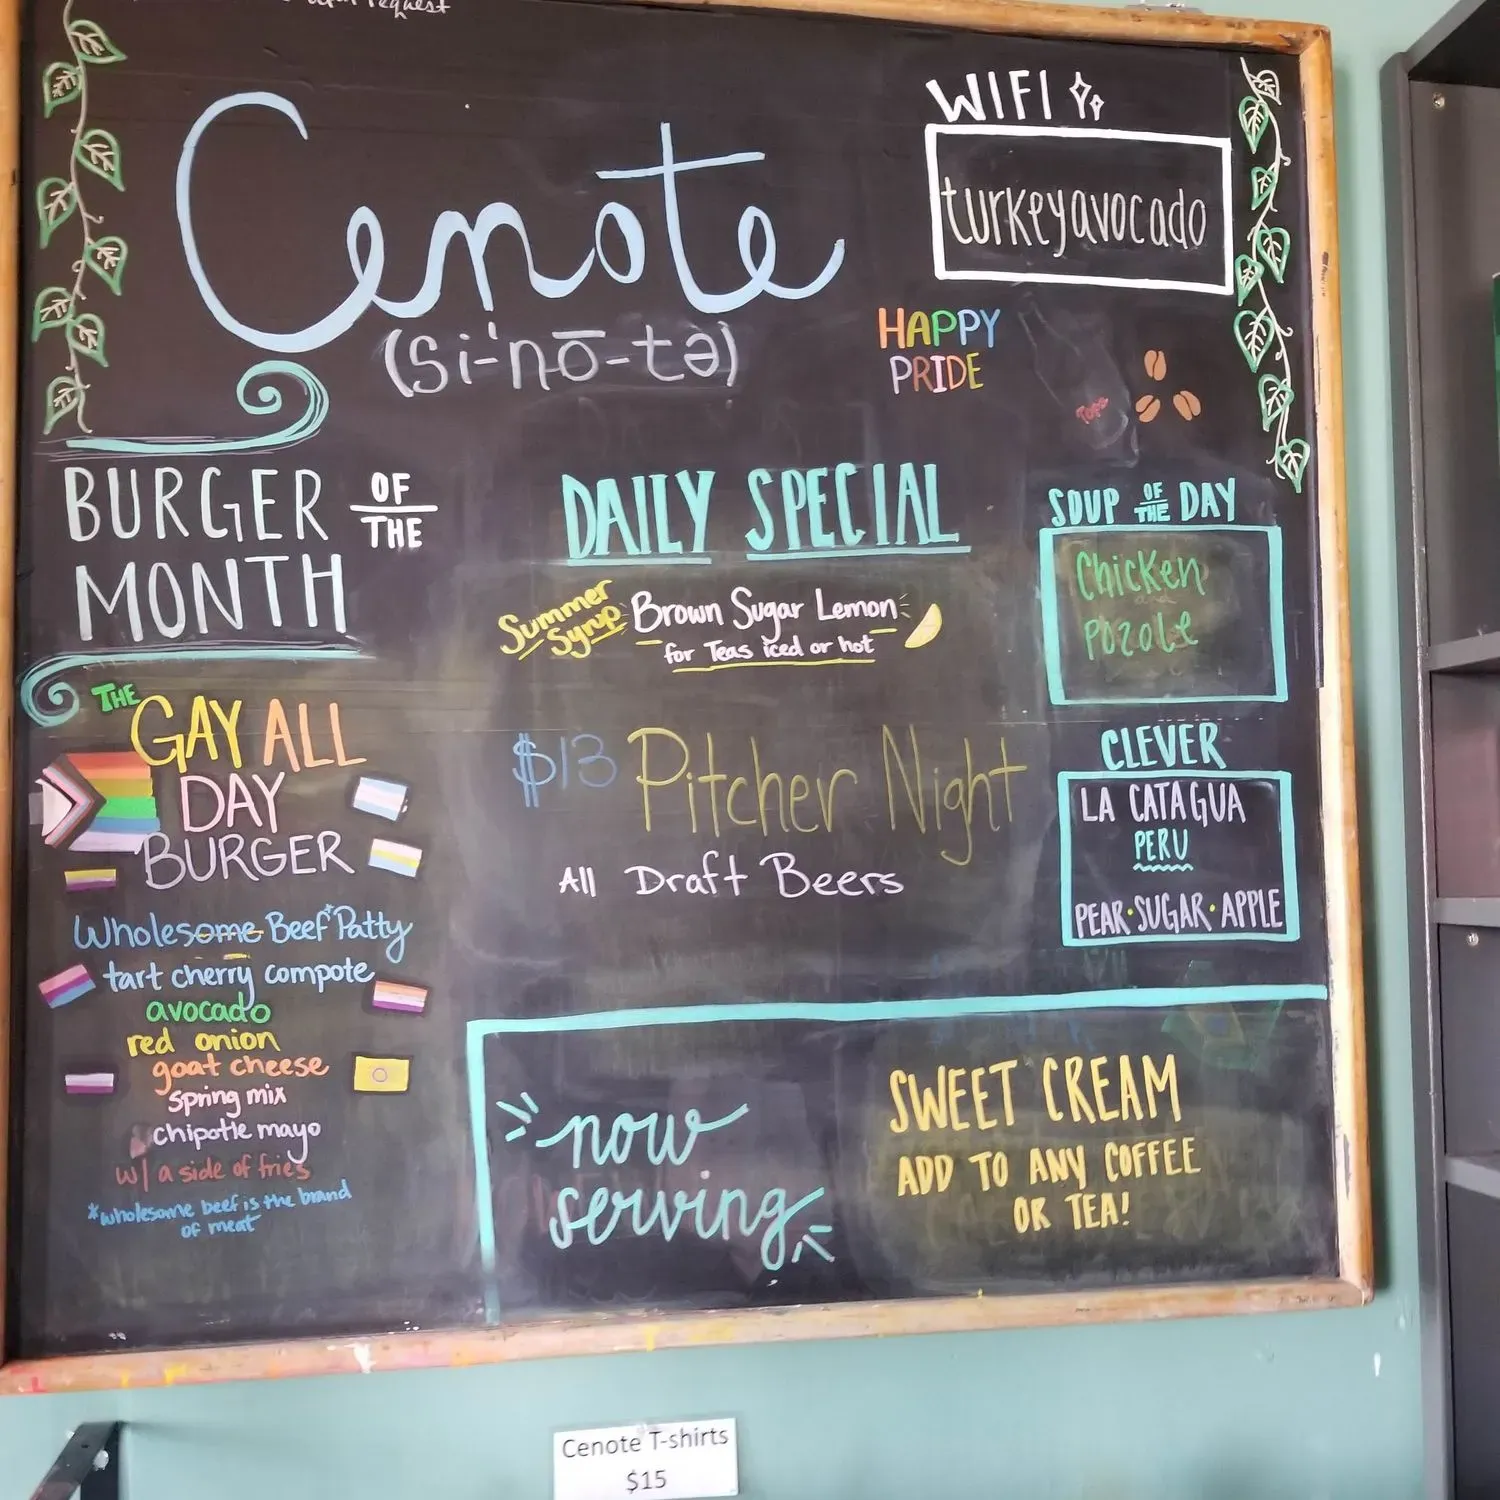 upon request
Cenote
(si-'nō-tə)
WIFI
turkeyavocado
HAPPY
PRIDE
Topo
BURGER OF THE
MONTH
THE
GAY ALL
DAY
BURGER
Wholesome Beef* Patty
tart cherry compote
avocado
red onion
goat cheese
spring mix
chipotle mayo
w/ a side of fries
*wholesome beef is the brand
of meat
DAILY SPECIAL
Summer
Syrup
Brown Sugar Lemon
for Teas iced or hot
$13 Pitcher Night
All Draft Beers
SOUP OF THE DAY
Chicken
Pozole
CLEVER
LA CATAGUA
PERU
PEAR·SUGAR·APPLE
now
serving
SWEET CREAM
ADD TO ANY COFFEE
OR TEA!
Cenote T-shirts
$15